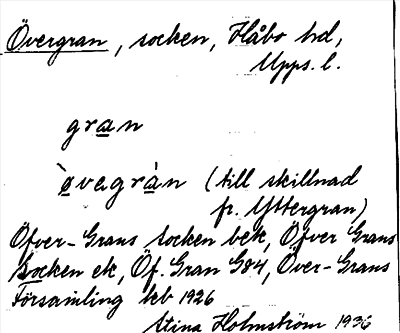 Övergran, socken, Håbo hd,
Upps. l.
gran
øvegràn (till skillnad
fr. Yttergran)
Öfver-Grans socken bek, Öfver Grans
Socken ek, Öf. Gran G84, Över-Grans
Församling kb 1926
Stina Holmström 1936